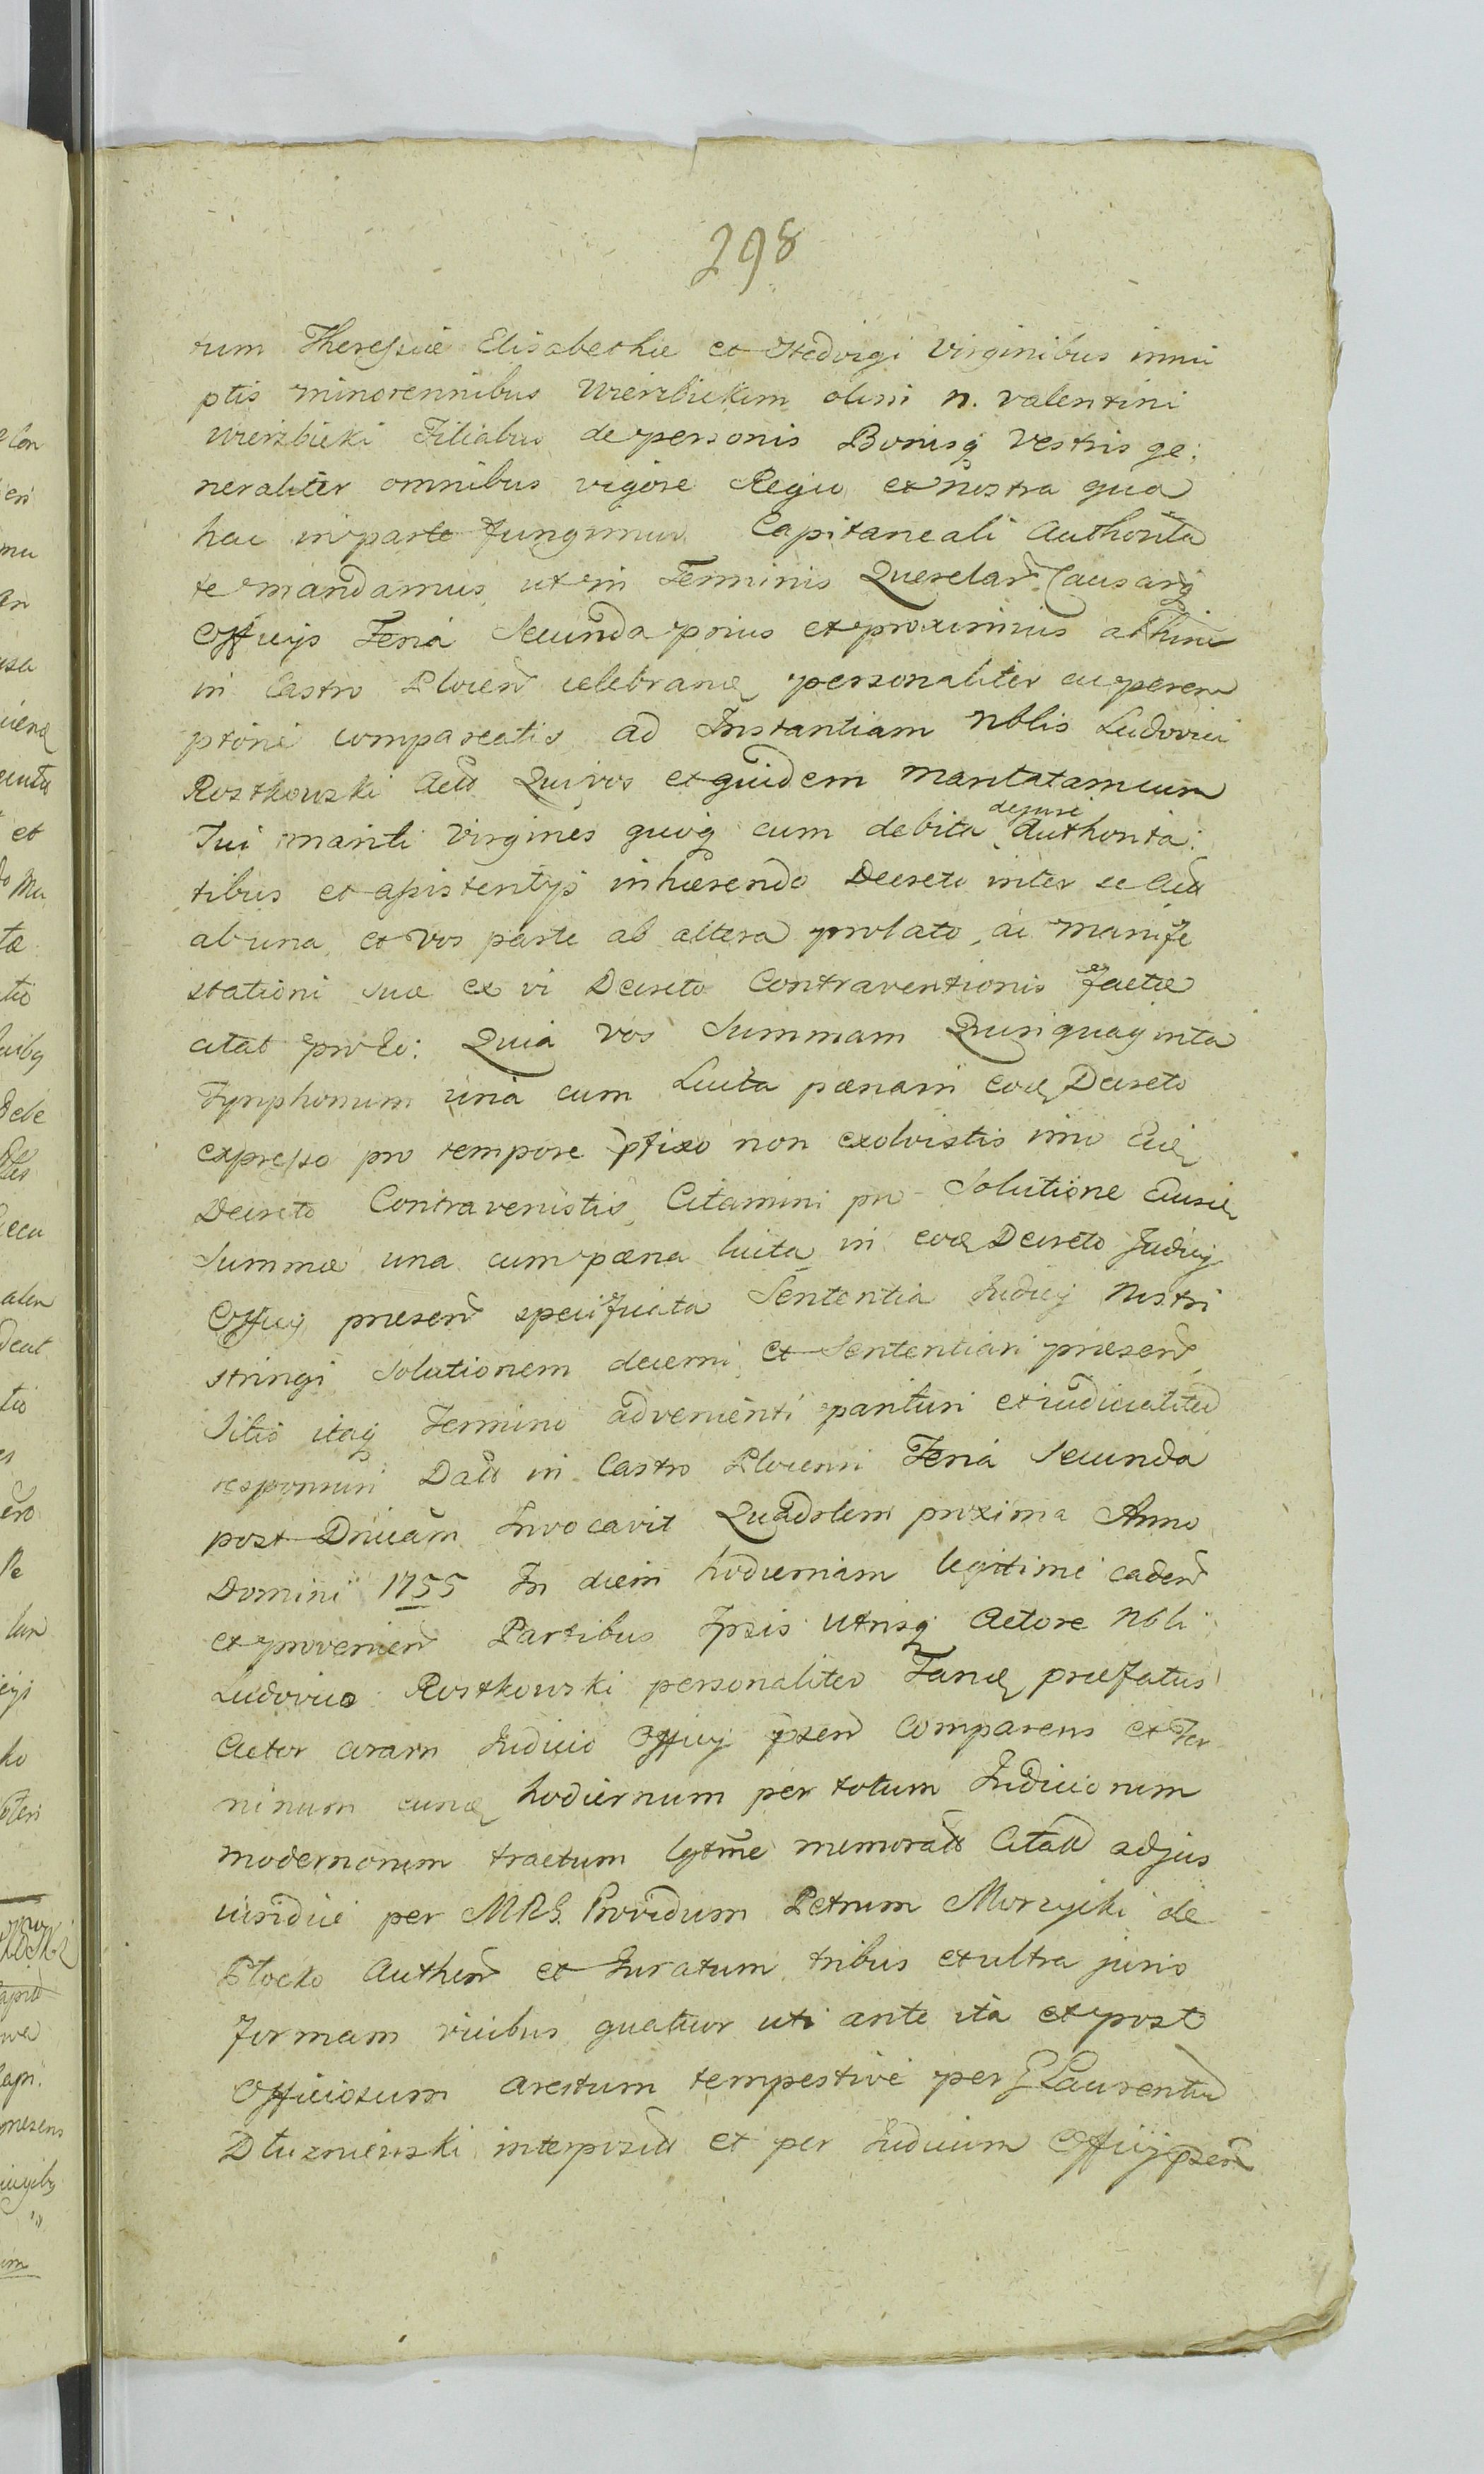 298
rum Theressiæ Elisabethæ et Hedvigi Virginibus innu
ptis minorennibus Wierzbickim olim n. Valentini
Wierzbicki Filiabus de personis Bonisq Vestris ge:
neraliter omnibus vigore Regia et nostra qua
hac in parte fungimur Capitaneali Authorita
te mandamus ut in Terminis Querelar Causarq
Officijs Feria Secunda prius et proximius abhinc
in Castro Plocen celebrand personaliter ac perem
ptorie compareatis ad Instantiam Nblis Ludovici
Rostkowski Act Qui vos et quidem
Tui mariti Virgines quoq cum debita de jure Authorita:
tibus et assistentijs inhærendo Decreto inter se Act
ab una et vos parte ab altera prolato, ac manife
stationi suæ ex vi Decreto Contraventionis factæ
citat pro eo: Quia vos Summam Quinquaginta
Tynphonum una cum Luita pænam eod Decreto
expresso pro tempore pfixo non exolvistis imo Eid
Decreto Contravenistis, Citamini pro Solutione Eiusd
Summæ una cum pæna luita in eod Decreto Judicij
Officij præsen specificata Sententia Judicij Nostri
stringi Solutionem decerni et Sententiari præsen
Sitis itaq Termino advenienti parituri et iudicialiter
responsuri Datt in Castro Plocensi Feria Secunda
post Dnicam Invocavit Quadrlem proxima Anno
Domini 1755 In diem hodiernam legitime caden
et provenien Partibus Ipsis utrisq Actore Nbli
Ludovico Rostkowski personaliter Tand præfatus
Actor coram Judicio Officij psen Comparens et Ter
minum eund hodiernum per totum Judiciorum
modernorum tractum lgtme memoratt Citatt ad jus
iuridice per MRG. Providum Petrum Morzycki de
Płocko Authen et Juratum tribus et ultra juris
formam vicibus quatuor uti ante ita et post
Officiosum arestum tempestive per G Laurentiu
Dłuzniewski interposit et per Judicium Officij psen